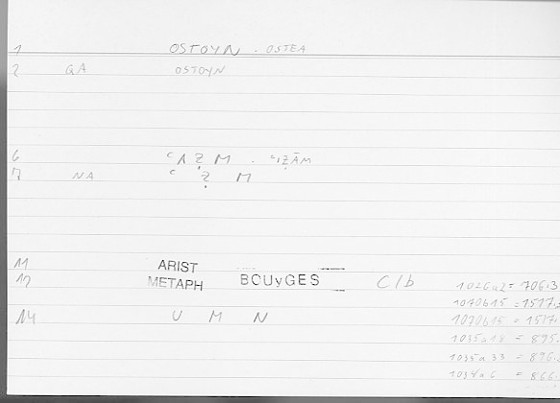 1 OSTOYN . OSTEA
2 QA OSTOYN
6 ʿAẒM . ʿIẒĀM
7 NA ʿẒM
11 ARIST
12 METAPH BOUyGES C/b 1026a2 = 706.3
1070b15 = 1517.
1070b15 = 1517.
14 U M N 1035a18 = 895.
1035a33 = 896.